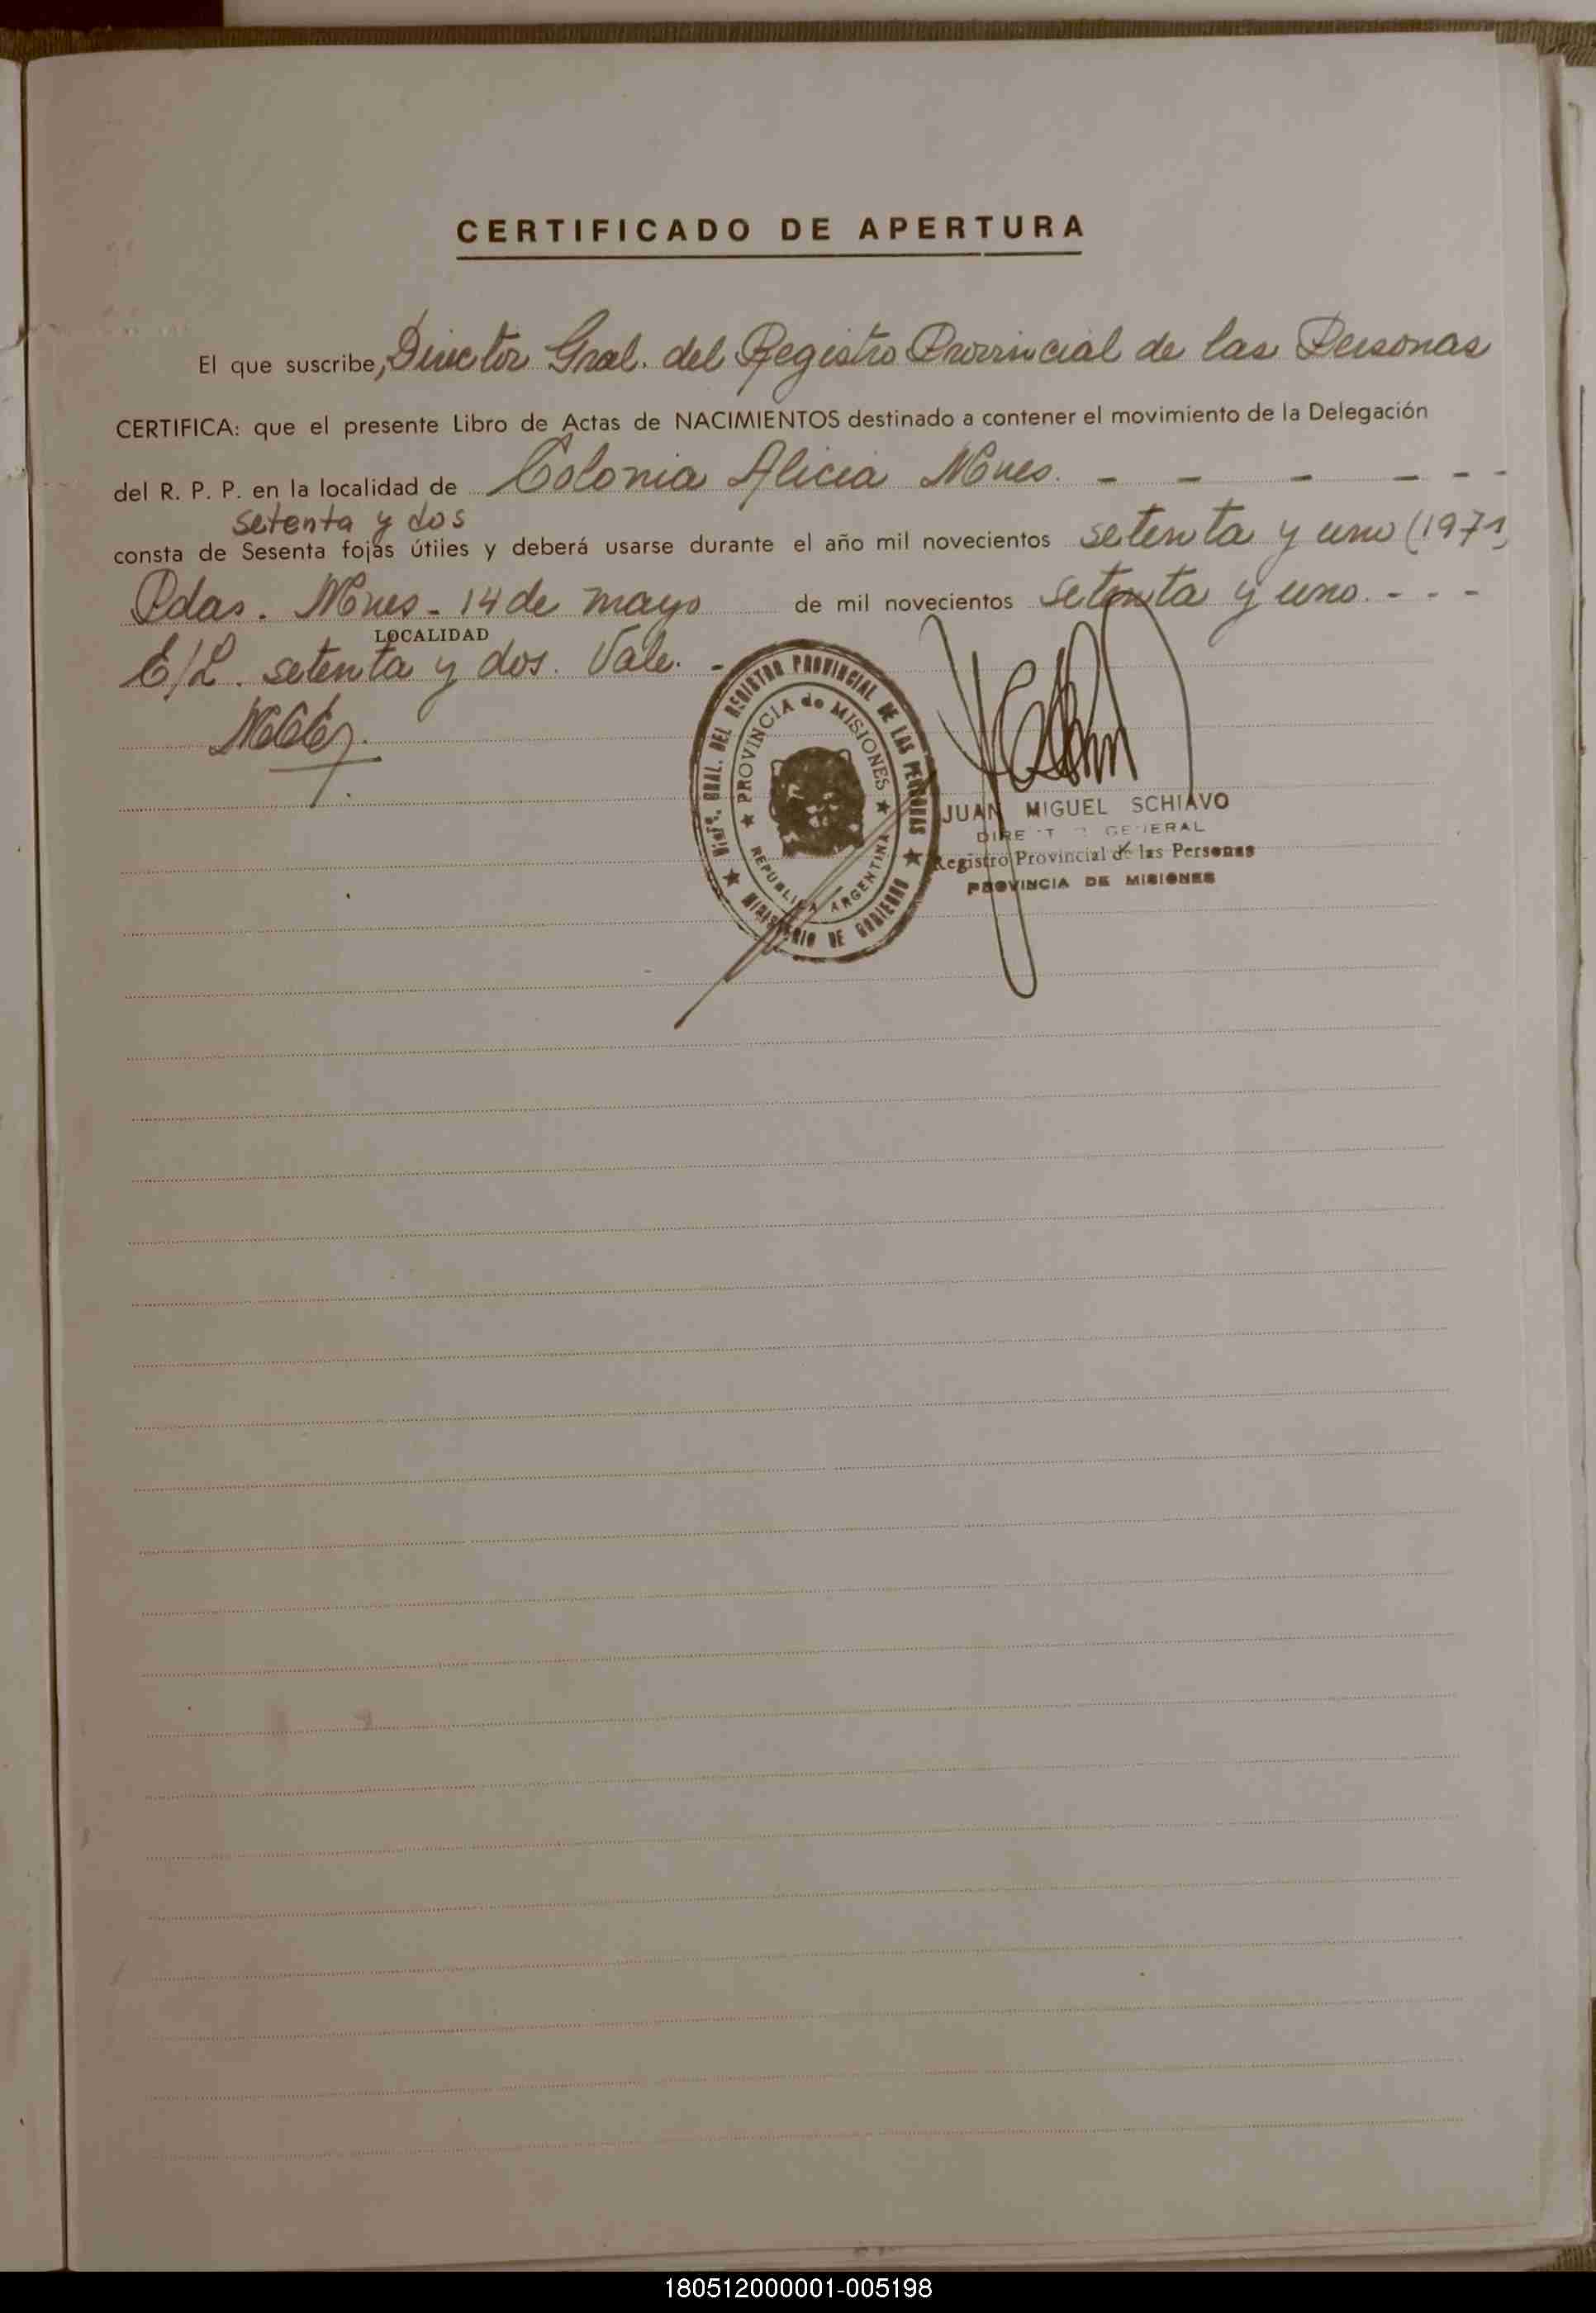 CERTIFICADO DE APERTURA
El que suscribe, Director Gral. del Registro Provincial de las Personas
CERTIFICA: que el presente Libro de Actas de NACIMIENTOS destinado a contener el movimiento de la Delegación
del R. P. P. en la localidad de Colonia Alicia Mnes. - - - - - -
setenta y dos
consta de Sesenta fojas útiles y deberá usarse durante el año mil novecientos setenta y uno (1971)
Pdas. Mnes - 14 de mayo de mil novecientos setenta y uno. - - -
LOCALIDAD
E/L. setenta y dos. Vale. -
DIREC. GRAL. DEL REGISTRO PROVINCIAL DE LAS PERSONAS
★ MINISTERIO DE GOBIERNO ★
★ PROVINCIA de MISIONES ★
REPUBLICA ARGENTINA
JUAN MIGUEL SCHIAVO
DIRECTOR GENERAL
Registro Provincial de las Personas
PROVINCIA DE MISIONES
180512000001-005198